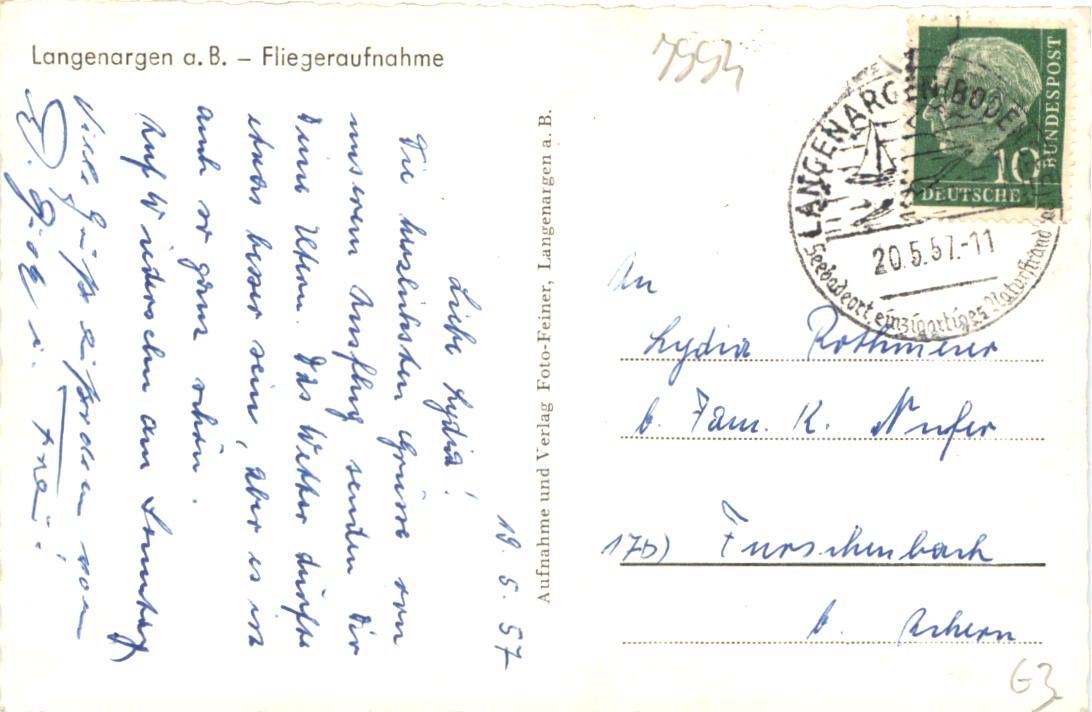 Langenargen a.B. – Fliegeraufnahme
19. 5. 57
Liebe Lydia!
Die herzlichsten Grüsse von
unserem Ausflug senden Dir
Deine Eltern. Das Wetter dürfte
etwas besser sein, aber es ist
auch so ganz schön.
Auf Wiedersehn am Sonntag
Viele Grüße außerdem vom
Aufnahme und Verlag Foto-Feiner, Langenargen a. B.
7994
LANGENARGEN (BODE
20.5.57.-11
Seebadeort einzigartiges Naturstrand
10
DEUTSCHE
BUNDESPOST
An
Lydia Rothmeier
b. Fam. K. Nufer
17b) Furschenbach
b. Achern